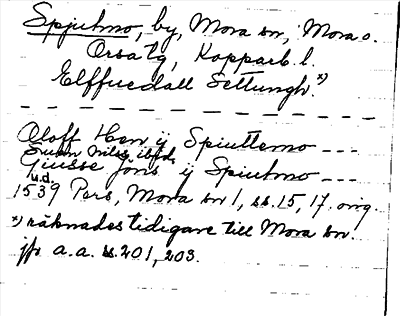 Spjutmo, by, Mora sn, Mora o.
Orsa tg, Kopparb. l.
Elffuedall Settungh.*)
Oloff Hen ij Spiuttemo ---
Suen Nilss ibid.
Giusse Jons ij Spiutmo ---
u.d.
1539 Pers, Mora sn 1, ss. 15, 17. orig.
*) räknades tidigare till Mora sn.
jfr a.a. s. 201, 203.